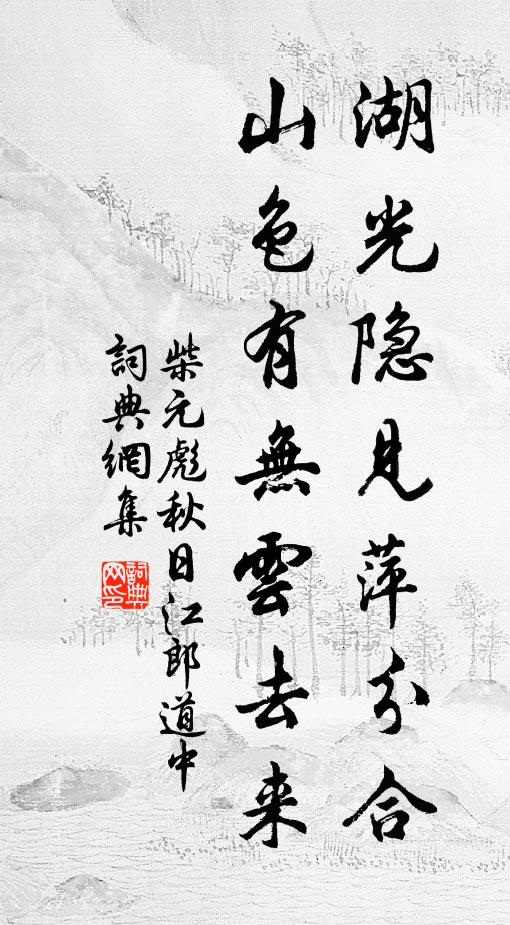 湖光隐見萍分合
山色有無雲去来
柴元彪秋日江郎道中
詞典網集
詞典
网印